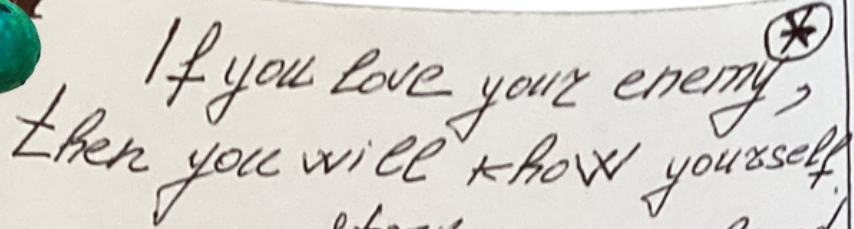 If you love your enemy, *
then you will know yourself.